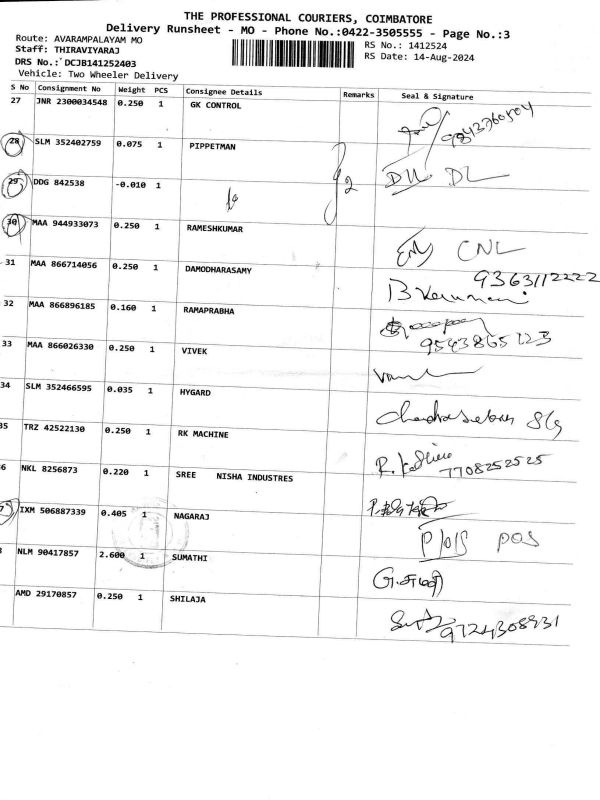 THE PROFESSIONAL COURIERS, COIMBATORE
Delivery Runsheet - MO - Phone No.:0422-3505555 - Page No.:3
Route: AVARAMPALAYAM MO RS No.: 1412524
Staff: THIRAVIYARAJ RS Date: 14-Aug-2024
DRS No.: DCJB141252403
Vehicle: Two Wheeler Delivery
S No Consignment No Weight PCS Consignee Details Remarks Seal & Signature
27 JNR 2300034548 0.250 1 GK CONTROL 9843760504
28 SLM 352402759 0.075 1 PIPPETMAN DL
29 DDG 842538 -0.010 1
30 MAA 944933073 0.250 1 RAMESHKUMAR CNL
31 MAA 866714056 0.250 1 DAMODHARASAMY 9363112222
32 MAA 866896185 0.160 1 RAMAPRABHA 9543865123
33 MAA 866026330 0.250 1 VIVEK
34 SLM 352466595 0.035 1 HYGARD
35 TRZ 42522130 0.250 1 RK MACHINE 7708252525
6 NKL 8256873 0.220 1 SREE NISHA INDUSTRES
7 IXM 506887339 0.405 1 NAGARAJ POS
NLM 90417857 2.600 1 SUMATHI G.சுமதி
AMD 29170857 0.250 1 SHILAJA 9724308931